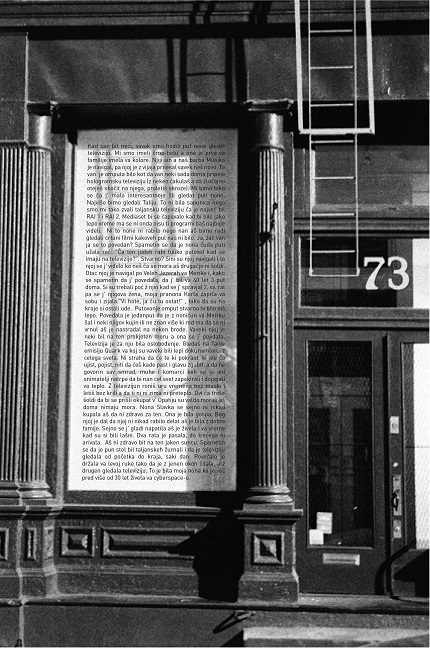 Kad san bil mići, savek smo hodili pul none gledat
televiziju. Mi smo imeli črno-belu a ona je prva va
familije imela va kolore. Njoj sin a naš barba Milojko
je navijal, pa njoj je z vijaja prnesal vavek neš novo. To
van je omputa bilo kot da van neki sada doma prinesa
hologramsku televiziju (z neken čakulaš a da slučajno
oteješ skočit na njega, proletiš skroze). Mi bimo tako
se ča j' malo interesantneje šli gledat pul none.
Najviše bimo gledali Taliju. To ni bila sapunica nego
smo mi tako zvali taljansku televiziju ča je najveć bil
RAI 1 i RAI 2. Mediaset bi se čapevalo kad bi bilo jako
lepo vreme ma se ni onda nisu ti programi baš najbolje
videli. Ni to none ni rabilo nego nan aš bimo radi
gledali crtani filmi kakoveh pul nas ni bilo. Ja, zač van
ja se to povedan? Spametin se da je nona čuda puti
užala reć: "Ča ten judem rabi tuliko putovat kad se
imaju na televizije?". Stvarno? Sini su njoj navigali i to
njoj se j' videlo kuj neš ča se mora aš drugačje ni šoldi.
Otac njoj je navigal po Veleh Jezereh va Merike i, kako
se spametin da j' povedala, da j' bil va 40 let 3 put
doma. Si su trebali poć z njin kad se j' spravjal 2. se rat
pa se j' njigova žena, moja pranona Karta zaprla va
sobu i zijala "Vi hote, ja ću tu ostat!", tako da su na
kraje si ostali ode. Putovanje omput stvarno ni bilo niš
lepo. Povedala je jedanput da je z noničun va Meriku
šal i neki njigov kujin ili ne znan više ki rod ma da se ni
vrnul aš je nastradal na neken brode. Vavek njoj je
neki bil na ten prokjeten moru a ona se j' pojidala.
Televizija je za nju bila oslobođenje. Gledaš na Talije
emisiju Quark va koj su vaveki bili lepi dokumentarci z
celega sveta. Ni straha da će te ki pokrast, ki ala će
ujist, pojist, hiti da ćeš kade past i glavu zgubit, a da ne
govorin sav smrad, muhe i komarci keh se ti oni
snimatelji natrpe da bi nan cel svet zapakirali i dopejali
va teplo. Z televizijun roniš uru vremena bez maski i
letiš bez kril a da ti ni ni zima ni preteplo. Da i ča trošit
šoldi da bi se prišli okupat v' Opatiju su va ta moru, aš
doma nimaju mora. Nona Slavka se sejno ni nikad
kupala aš da ni zdravo za ten. Ona je bila gospa. Bog
njoj je dal da njoj ni nikad rabilo delat aš je bila z dobre
familje. Sejno se j' gladi napatila aš je živela i va vreme
kad su si bili lašni. Dva rata je pasala, do trećega ni
arivala. Aš ni zdravo bit na ten jaken suncu. Spametin
se da je pun stol bil taljanskeh žurnali i da je televiziju
gledala od početka do kraja, saki dan. Povečalo je
držala va levoj ruke tako da je z jenen okon čitala, a z
drugen gledala televiziju. To je bila moja nona ka je već
pred više od 30 let živela va cyberspace-u.
73